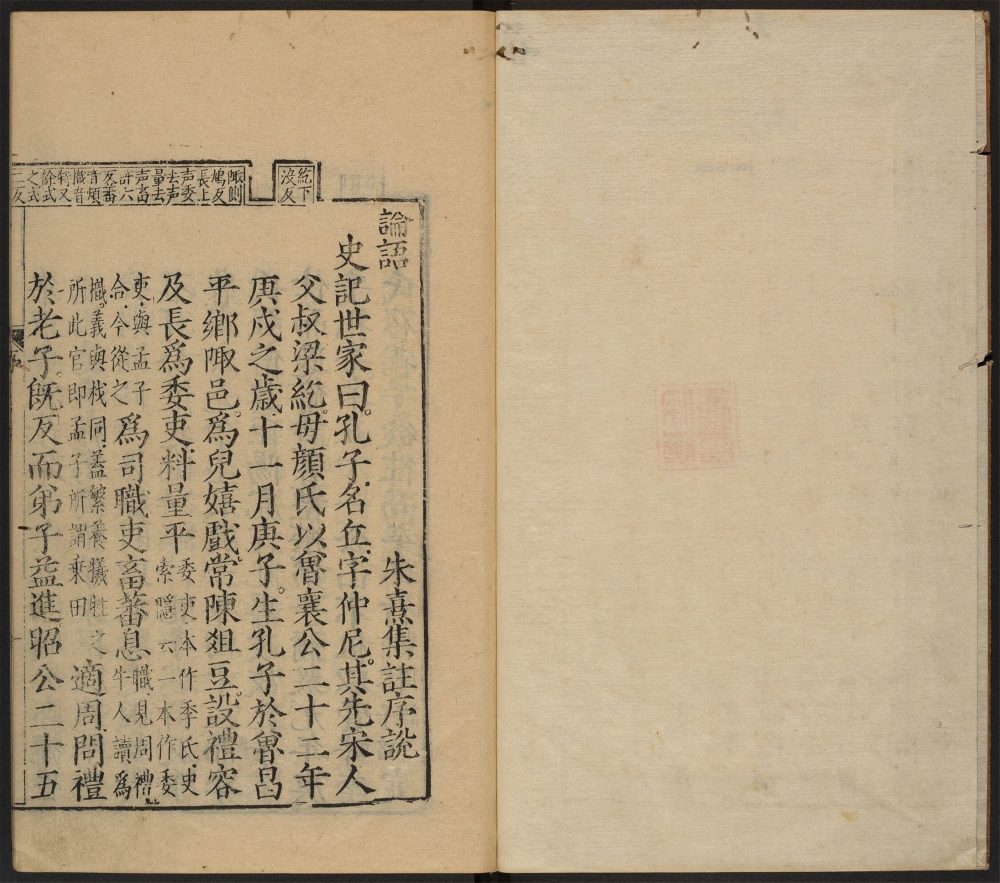 紇下
沒反
陬則
鳩反
長上
声委
去声
量去
声畜
許六
反蕃
音煩
職音
特又
餘式
之式
二反
論語
朱熹集註序說
史記世家曰孔子名丘字仲尼其先宋人
父叔梁紇母顏氏以魯襄公二十二年
庚戌之歲十一月庚子生孔子於魯昌
平鄉陬邑為兒嬉戲常陳俎豆設禮容
及長為委吏料量平
委吏本作季氏史
索隱云一本作委
吏與孟子
合今從之
為司職吏畜蕃息
職見周禮
牛人讀為
樴義與杙同蓋繫養犧牲之
所此官即孟子所謂乘田
適周問禮
於老子既反而弟子益進昭公二十五